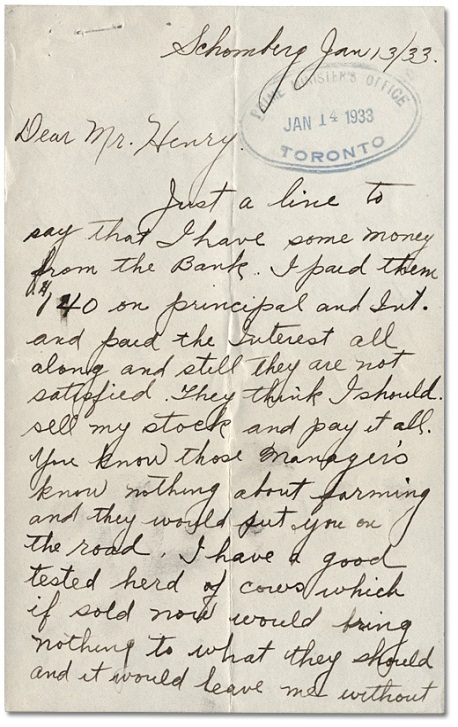 Schomberg Jan 13/33.
PRIME MINISTER'S OFFICE
JAN 14 1933
TORONTO
Dear Mr. Henry.
Just a line to
say that I have some money
from the Bank. I paid them
$140 on principal and Int.
and paid the Interest all
along and still they are not
satisfied. They think I should.
sell my stock and pay it all.
You know those Manager's
know nothing about farming
and they would put you on
the road. I have a good
tested herd of cows which
if sold now would bring
nothing to what they should
and it would leave me without